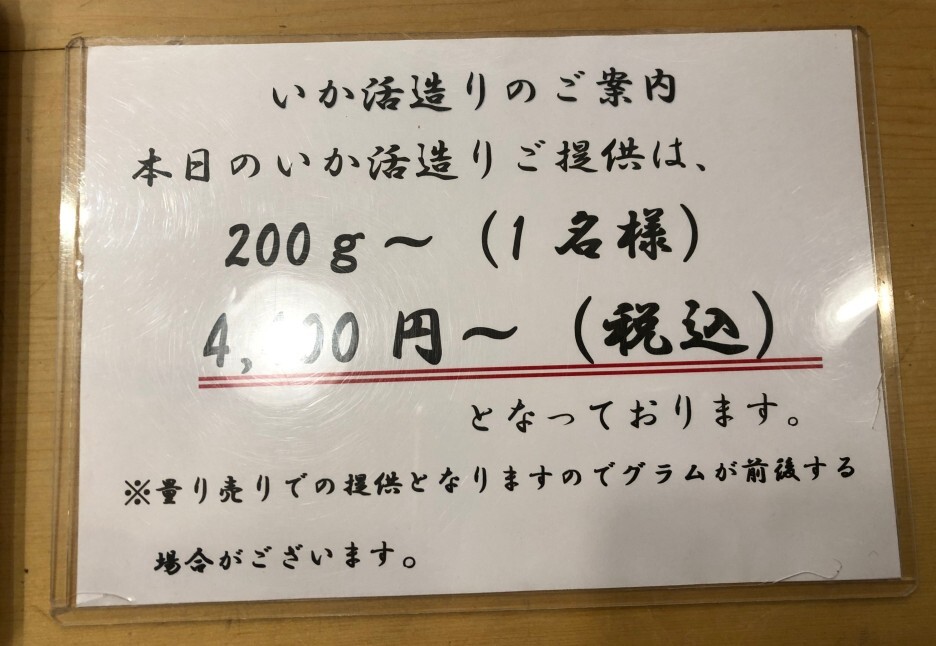 いか活造りのご案内
本日のいか活造りご提供は、
200g～（1名様）
円～（税込）
となっております。
※量り売りでの提供となりますのでグラムが前後する
場合がございます。